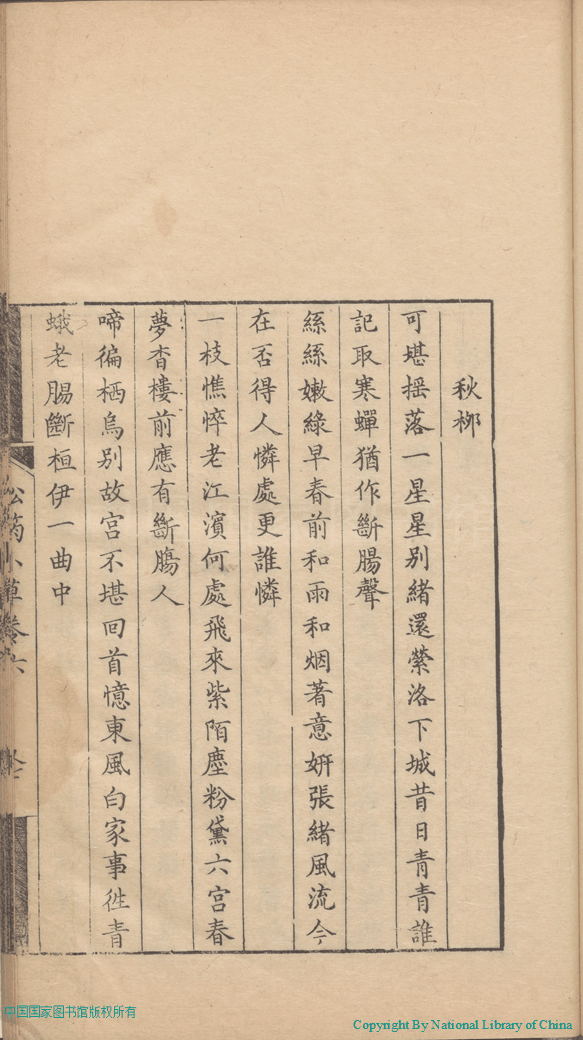 秋栁
可堪揺落一星星別緒還縈洛下城昔日青青誰
記取寒蟬猶作斷腸聲
絲絲嫩綠早春前和雨和烟著意妍張緒風流今
在否得人憐處更誰憐
一枝憔悴老江濱何處飛來紫陌塵粉黛六宫春
夢杳樓前應有斷膓人
啼徧栖烏別故宫不堪回首憶東風白家事徃青
蛾老腸斷桓伊一曲中
松筠小草卷六
中国国家图书馆版权所有
Copyright By National Library of China